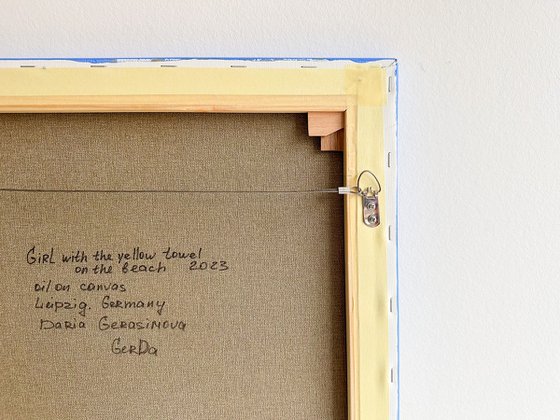 Girl with the yellow towel
on the beach 2023
oil on canvas
Leipzig. Germany
Daria Gerasimova
GerDa